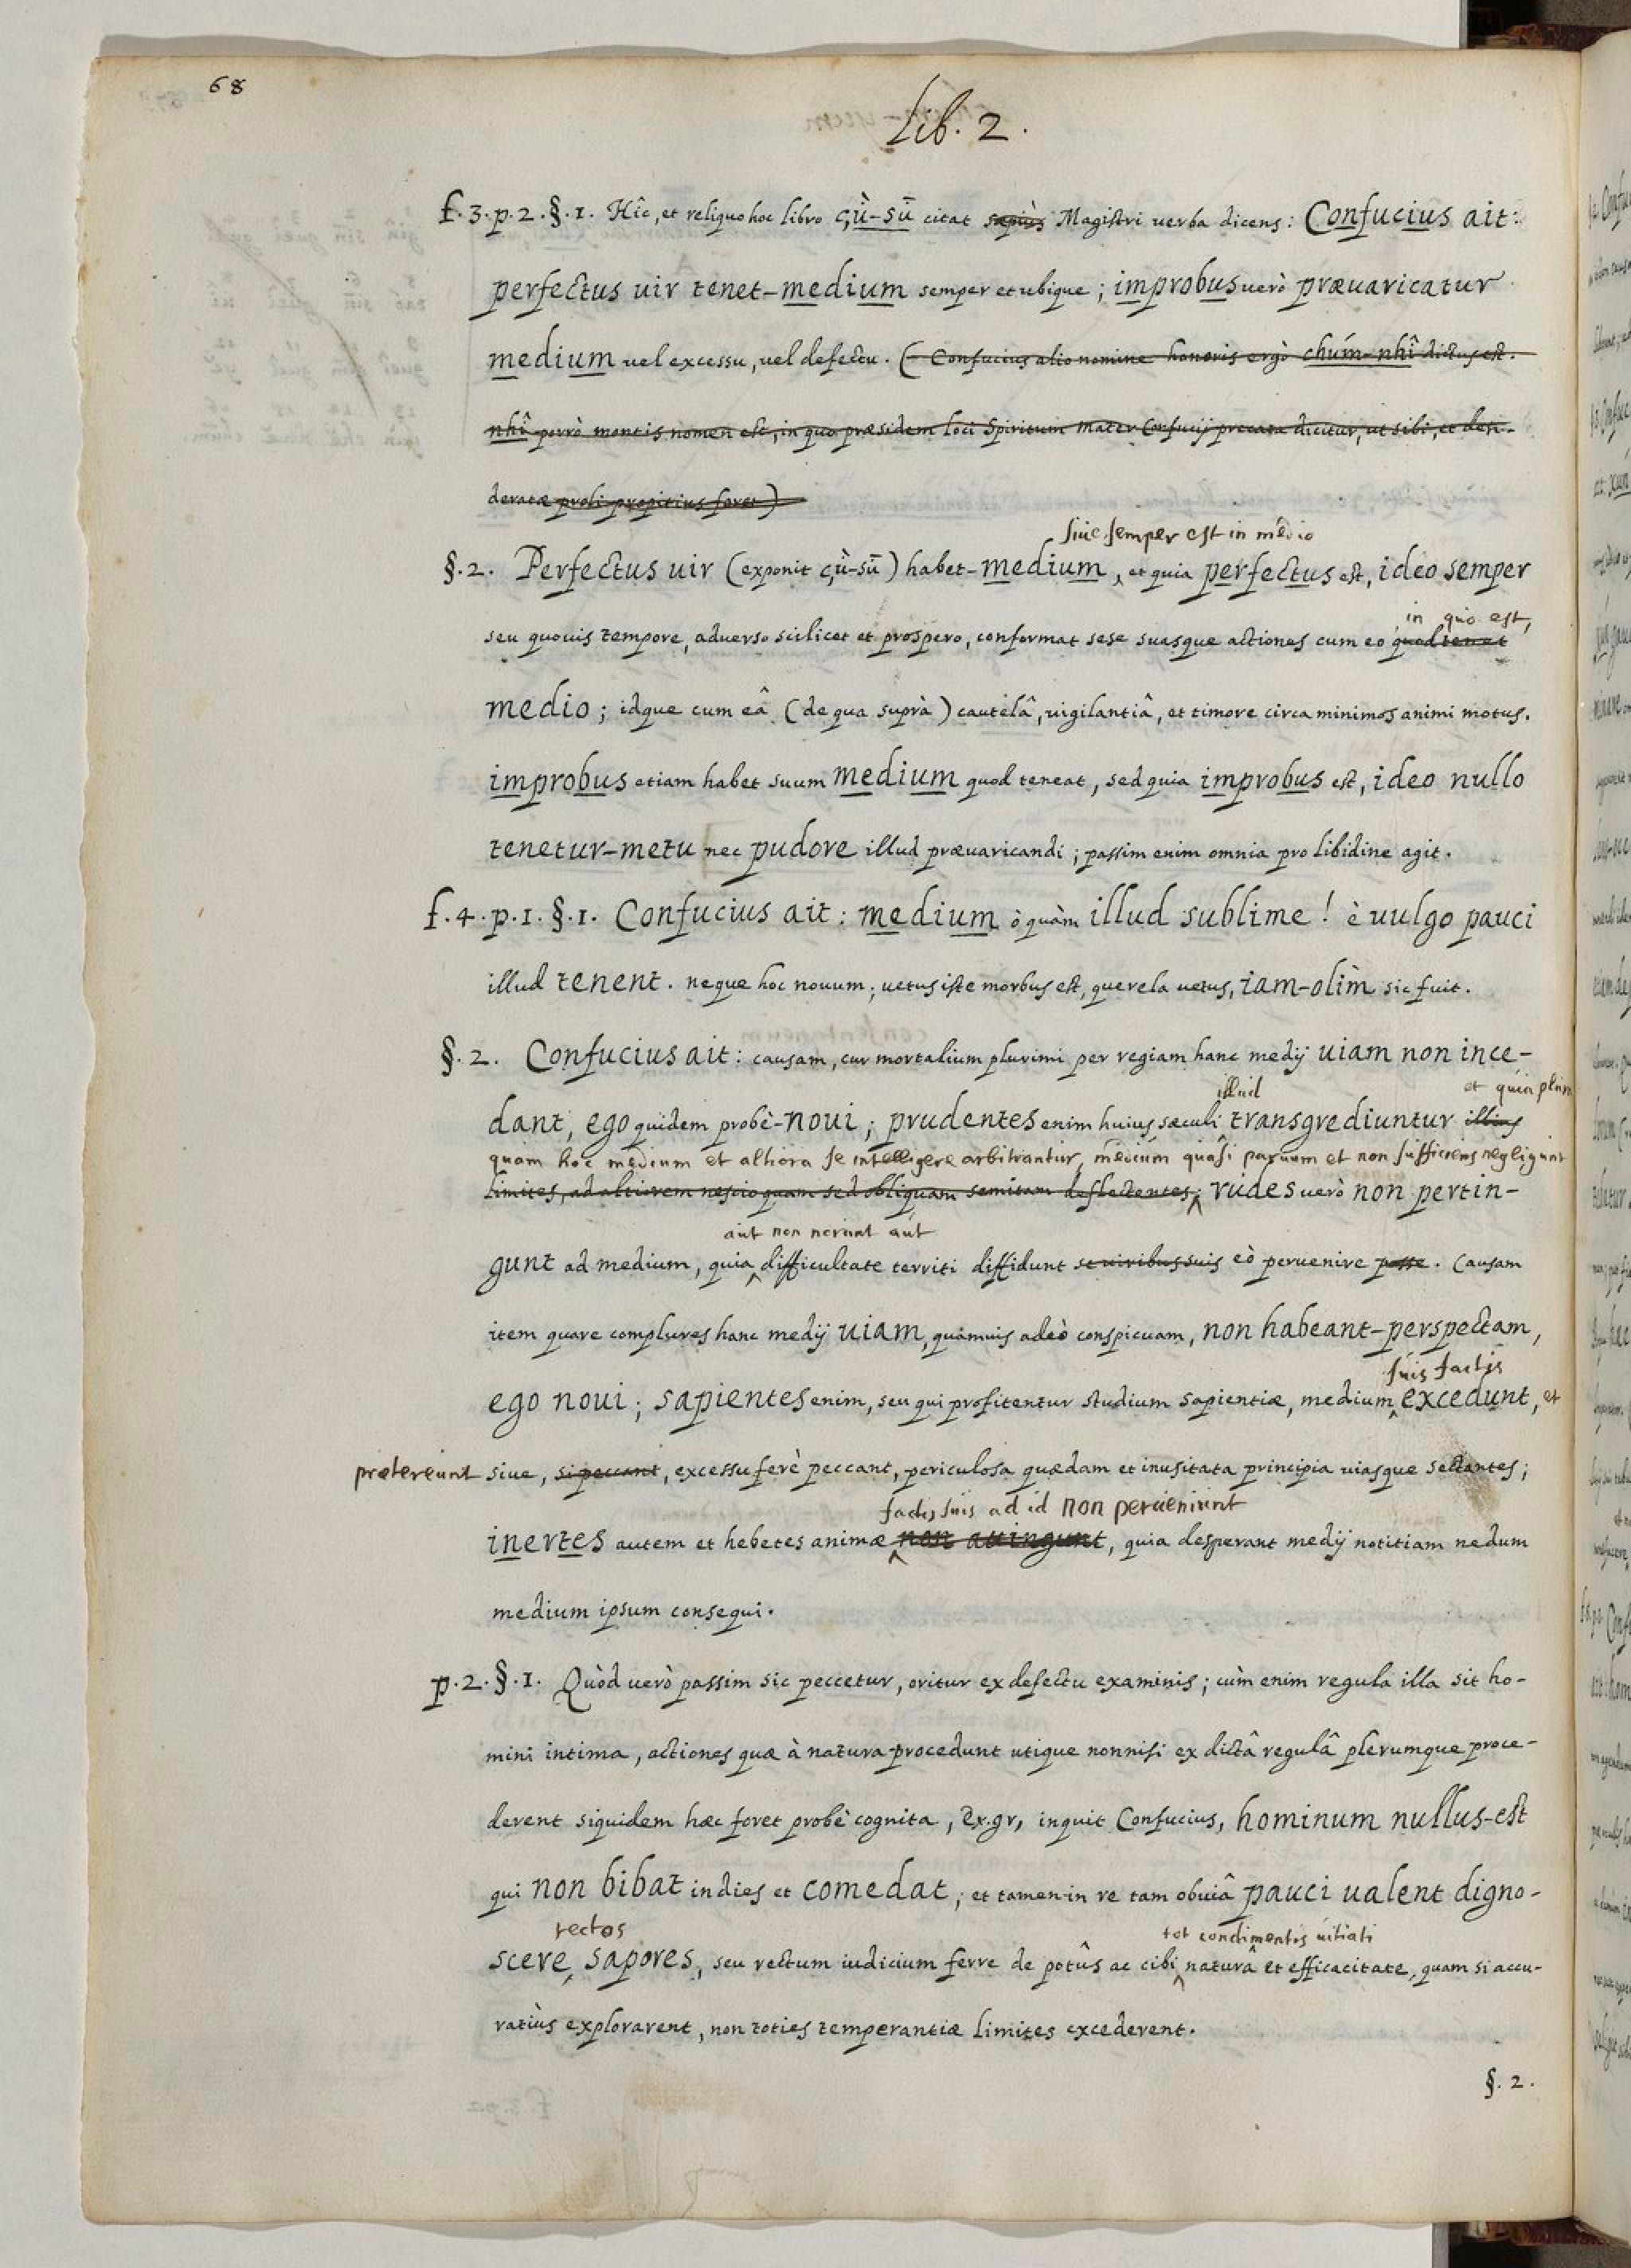 68
Lib. 2.
f.3.p.2.§.1. Hîc, et reliquo hoc libro çù-sū citat sæpiùs Magistri verba dicens: Confucius ait:
perfectus uir tenet-medium semper et ubique; improbus uerò præuaricatur
medium uel excessu, uel defectu. (Confucius alio nomine honoris ergò chúm-nhî dictus est.
nhî porrò montis nomen est, in quo præsidem loci Spiritum mater Confucij precata dicitur, ut sibi, et desi-
deratæ proli propitius foret)
siue semper est in medio
§.2. Perfectus uir (exponit çù-sū) habet-medium, et quia perfectus est, ideo semper
in quo est,
seu quouis tempore, aduerso scilicet et prospero, conformat sese suasque actiones cum eo quod tenet
medio; idque cum eâ (de qua suprà) cautelâ, uigilantiâ, et timore circa minimos animi motus.
improbus etiam habet suum medium quod teneat, sed quia improbus est, ideo nullo
tenetur-metu nec pudore illud præuaricandi; passim enim omnia pro libidine agit.
f.4.p.1.§.1. Confucius ait: medium ò quàm illud sublime! è uulgo pauci
illud tenent. neque hoc nouum; uetus iste morbus est, querela uetus, iam-olìm sic fuit.
§.2. Confucius ait: causam, cur mortalium plurimi per regiam hanc medij uiam non ince-
illud et quia plus
dant, ego quidem probè-noui; prudentes enim huius sæculi transgrediuntur illius
quam hoc medium et altiora se intelligere arbitrantur, medium quasi paruum et non sufficiens negligunt
limites, ad altiorem nescio quam sed obliquam semitam deflectentes; rudes uerò non pertin-
aut non norunt aut
gunt ad medium, quia difficultate territi diffidunt se uiribus suis eò peruenire posse. Causam
item quare complures hanc medij uiam, quamuis adeò conspicuam, non habeant-perspectam,
suis factis
ego noui; sapientes enim, seu qui profitentur studium sapientiæ, medium excedunt, et
prætereunt siue, si peccant, excessu ferè peccant, periculosa quædam et inusitata principia uiasque sectantes;
factis suis ad id non perueniunt
inertes autem et hebetes animæ non attingunt, quia desperant medij notitiam nedum
medium ipsum consequi.
p.2.§.1. Quòd uerò passim sic peccetur, oritur ex defectu examinis; cùm enim regula illa sit ho-
mini intima, actiones quæ à natura procedunt utique nonnisi ex dictâ regulâ plerumque proce-
derent siquidem hæc foret probè cognita, Ex.gr, inquit Confucius, hominum nullus-est
qui non bibat in dies et comedat; et tamen in re tam obuiâ pauci ualent digno-
rectos tot condimentis uitiati
scere sapores, seu rectum iudicium ferre de potûs ac cibi naturâ et efficacitate, quam si accu-
ratiùs explorarent, non toties temperantiæ limites excederent.
§.2.